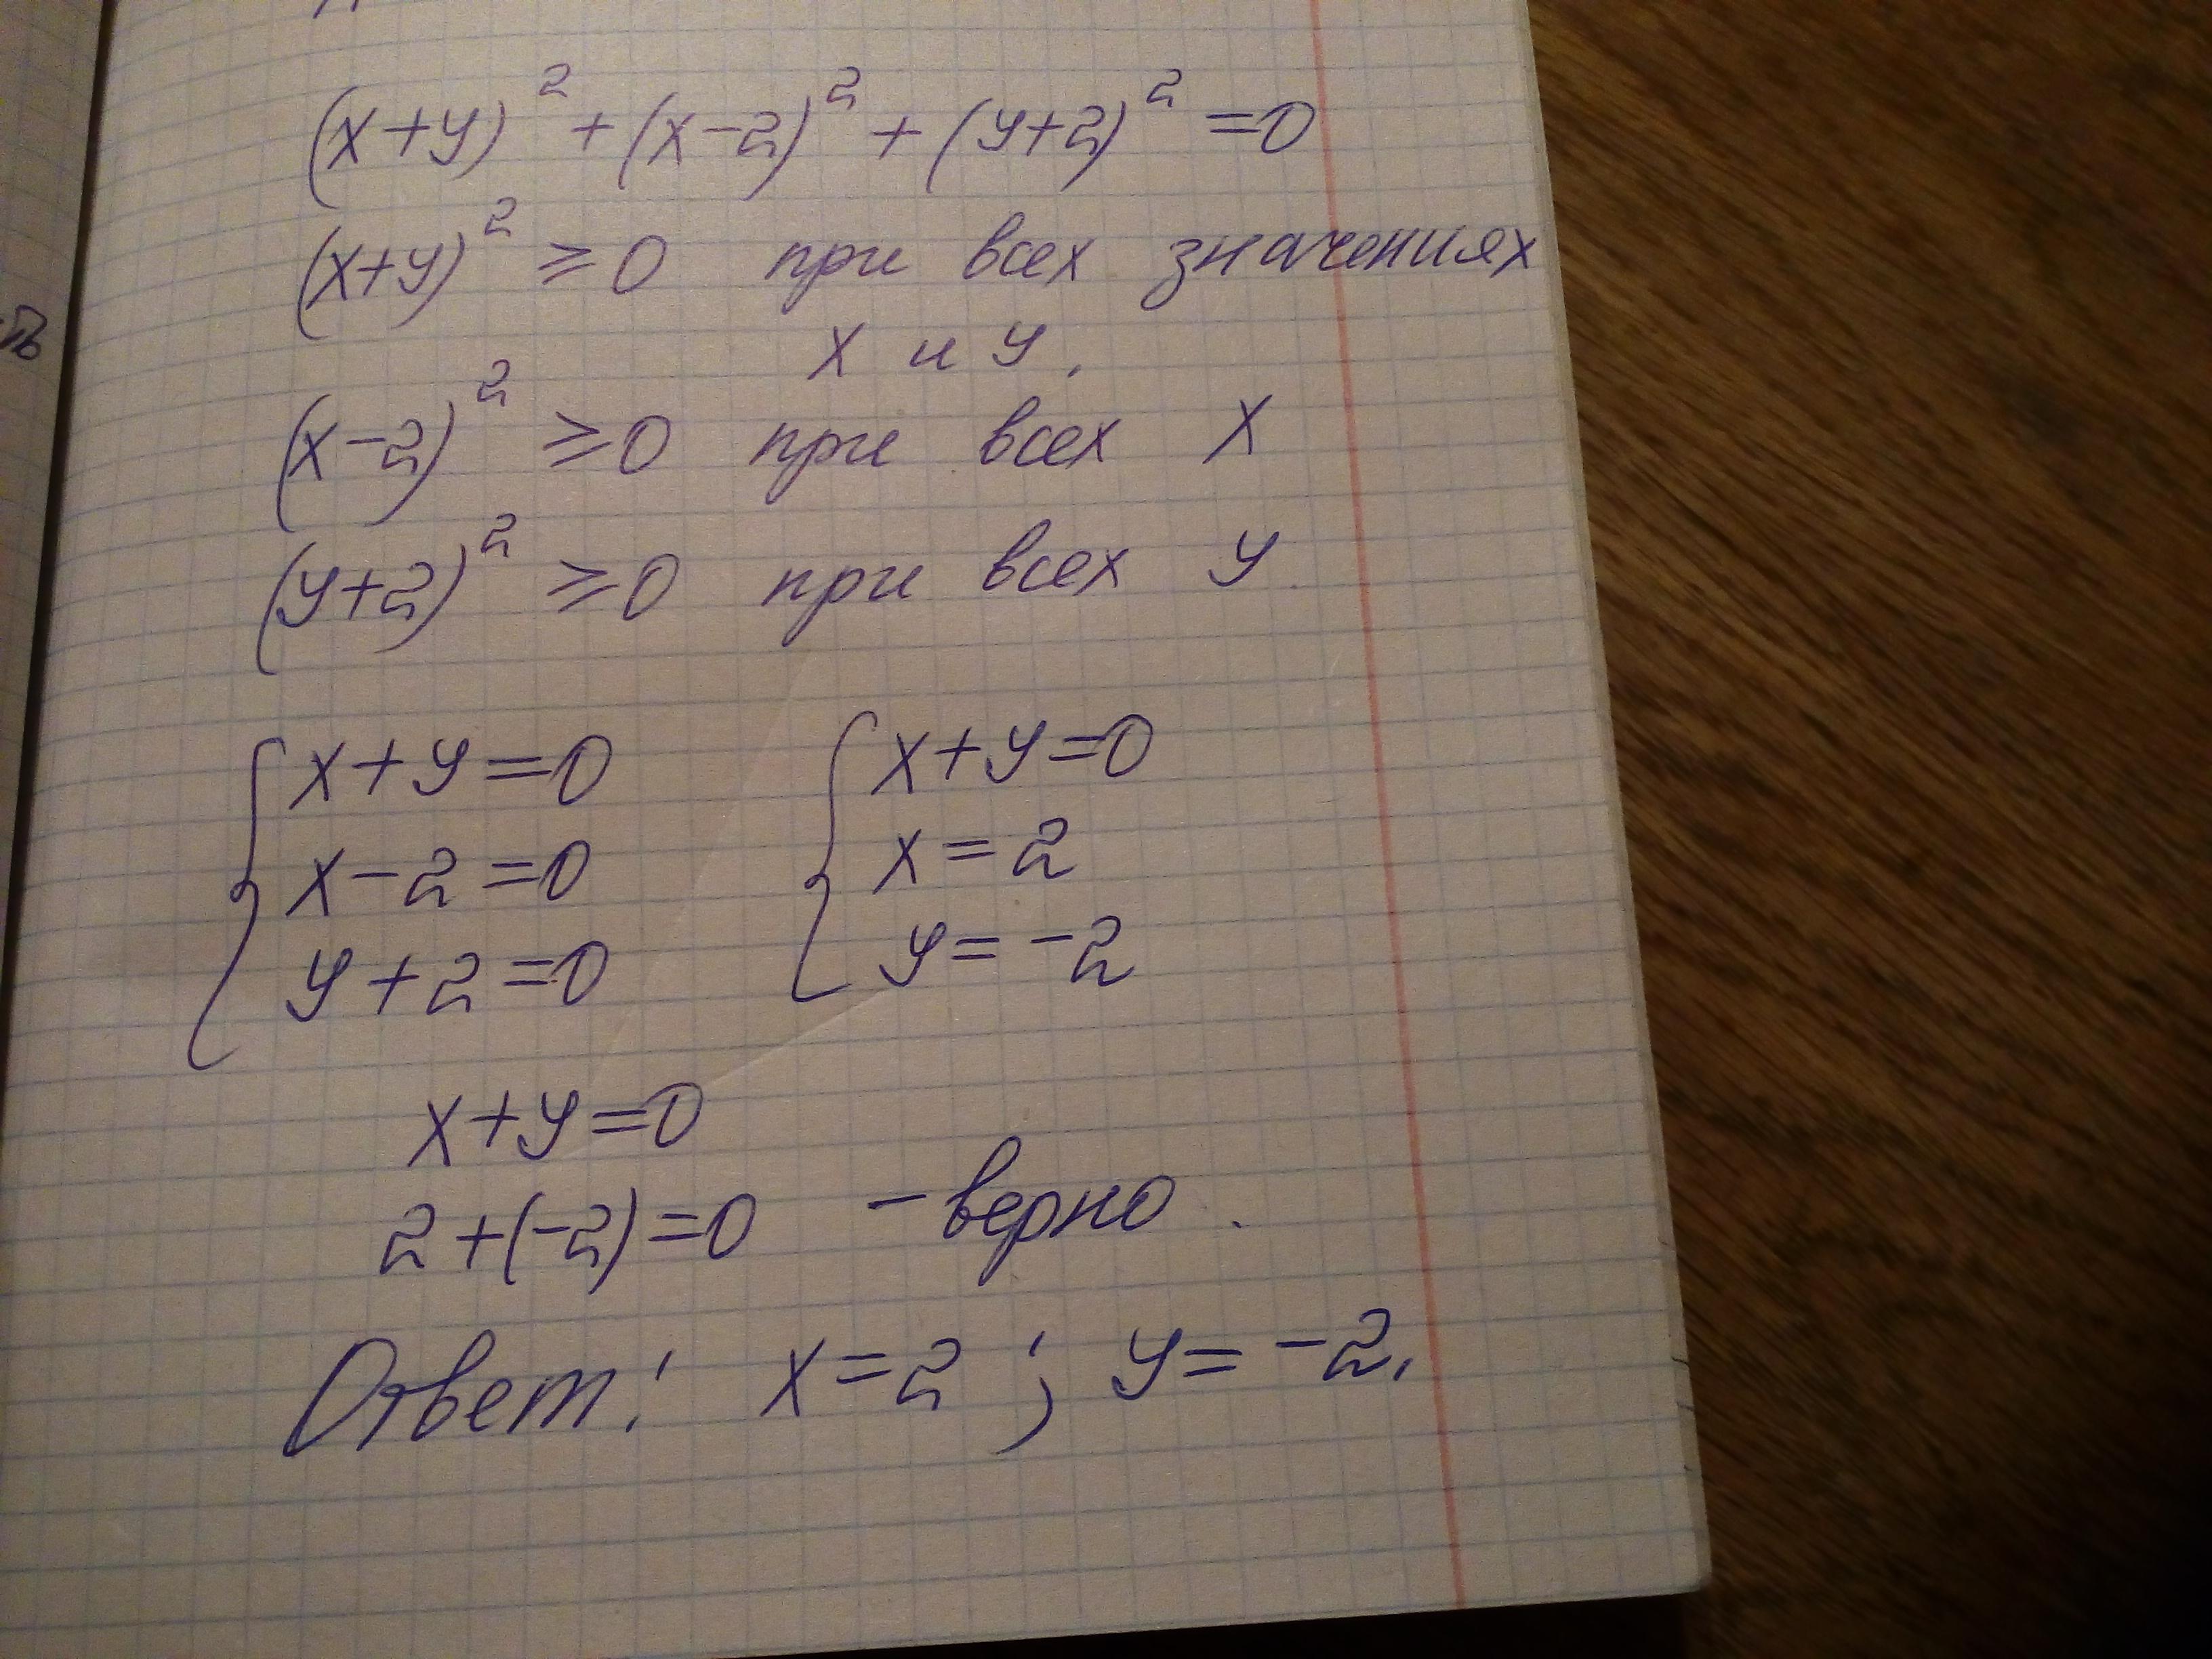 (x+y)² + (x-2)² + (y+2)² = 0
(x+y)² ⩾ 0 при всех значениях
x и y.
(x-2)² ⩾ 0 при всех x
(y+2)² ⩾ 0 при всех y.
{ x+y=0 { x+y=0
x-2=0 x=2
y+2=0 y=-2
x+y=0
2+(-2)=0 - верно.
Ответ: x=2; y=-2.